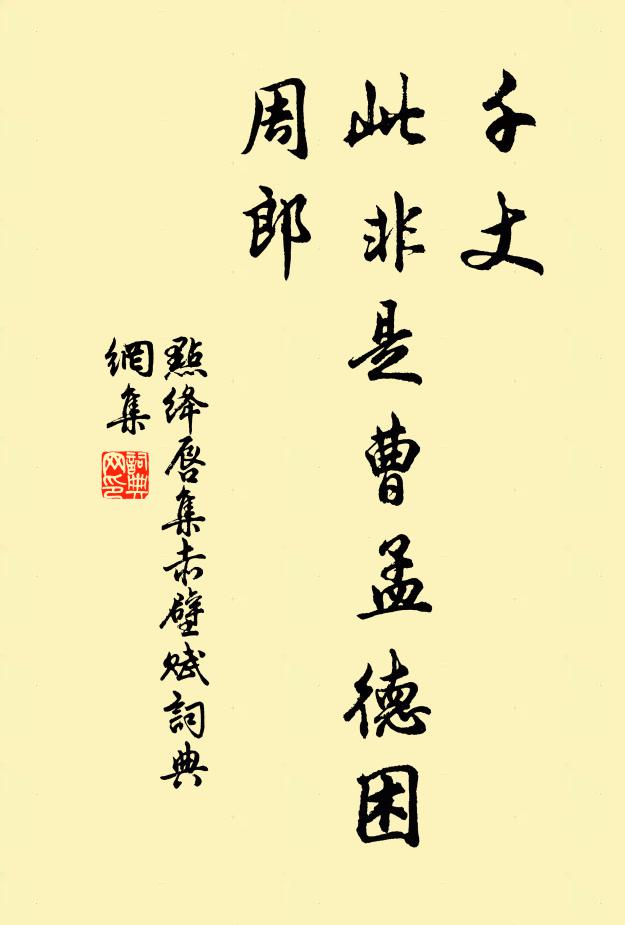 千丈
此非是曹孟德困
周郎
點绛唇集赤壁賦詞典
網集
詞典
网印